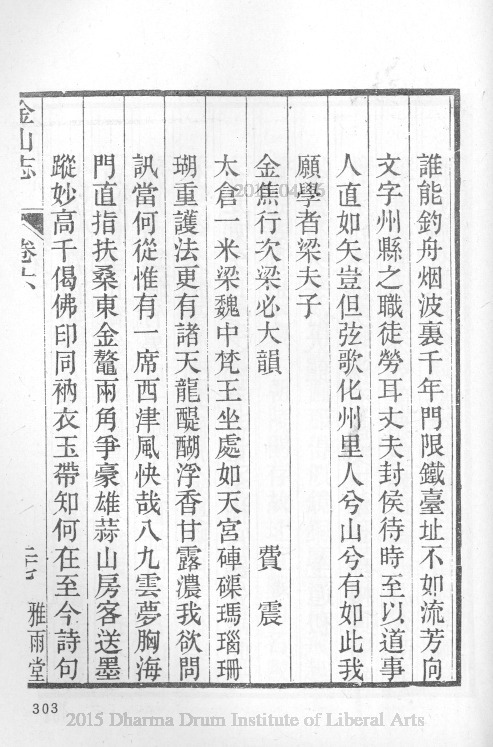 誰能釣舟烟波裏千年門限鐵臺址不如流芳向
文字州縣之職徒勞耳丈夫封侯待時至以道事
人直如矢豈但弦歌化州里人兮山兮有如此我
願學者梁夫子
金焦行次梁必大韻 費震
太倉一米梁魏中梵王坐處如天宮硨磲瑪瑙珊
瑚重護法更有諸天龍醍醐浮香甘露濃我欲問
訊當何從惟有一席西津風快哉八九雲夢胸海
門直指扶桑東金鼇兩角爭豪雄蒜山房客送墨
蹤妙高千偈佛印同衲衣玉帶知何在至今詩句
金山志 卷六
雅雨堂
303
2015 Dharma Drum Institute of Liberal Arts